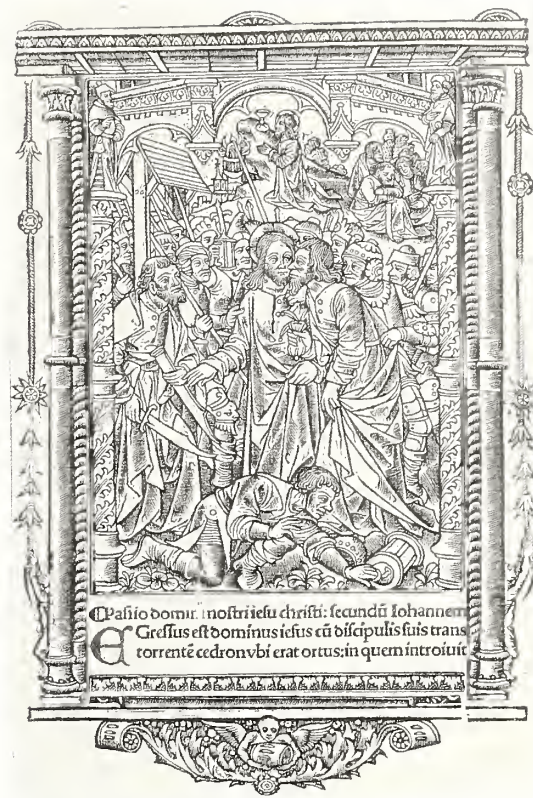 ¶Passio domini nostri iesu christi: secundũ Iohannem
EGressus est dominus iesus cũ discipulis suis trans
torrentẽ cedron vbi erat ortus: in quem introiuit